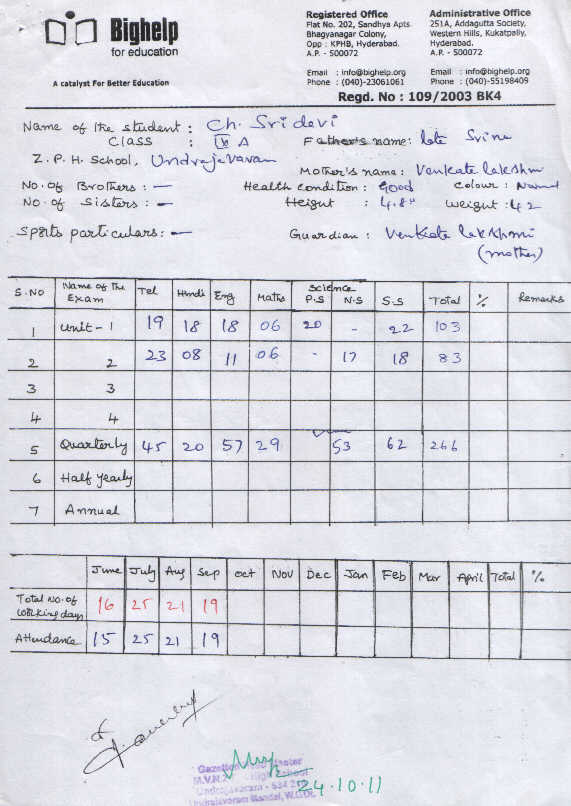 Bighelp
for education
A catalyst For Better Education
Registered Office
Flat No. 202, Sandhya Apts
Bhagyanagar Colony,
Opp : KPHB, Hyderabad.
A.P. - 500072
Email : info@bighelp.org
Phone : (040)-23061061
Administrative Office
251A, Addagutta Society,
Western Hills, Kukatpally,
Hyderabad.
A.P. - 500072
Email : info@bighelp.org
Phone : (040)-55198409
Regd. No : 109/2003 BK4
Name of the student : Ch. Sri devi
Class : IX A Father's name: late Srinu
Z. P. H. School, Undrajavaram
Mother's name: Venkata lakshmi
No. of Brothers : — Health condition : good Colour : Normal
No. of Sisters : — Height : 4.8" weight : 42
Sports particulars: — Guardian : Venkata lakshmi
(mother)
S.NO Name of the Exam Tel Hindi Eng Maths Science P.S N.S S.S Total % Remarks
1 Unit - 1 19 18 18 06 20 - 22 103
2 2 23 08 11 06 - 17 18 83
3 3
4 4
5 Quarterly 45 20 57 29 53 62 266
6 Half yearly
7 Annual
June July Aug Sep Oct Nov Dec Jan Feb Mar April Total %
Total No. of working days 16 25 21 19
Attendance 15 25 21 19
High School
Undrajavaram - 534
Undrajavaram Mandal, W.G.Dt.
24.10.11